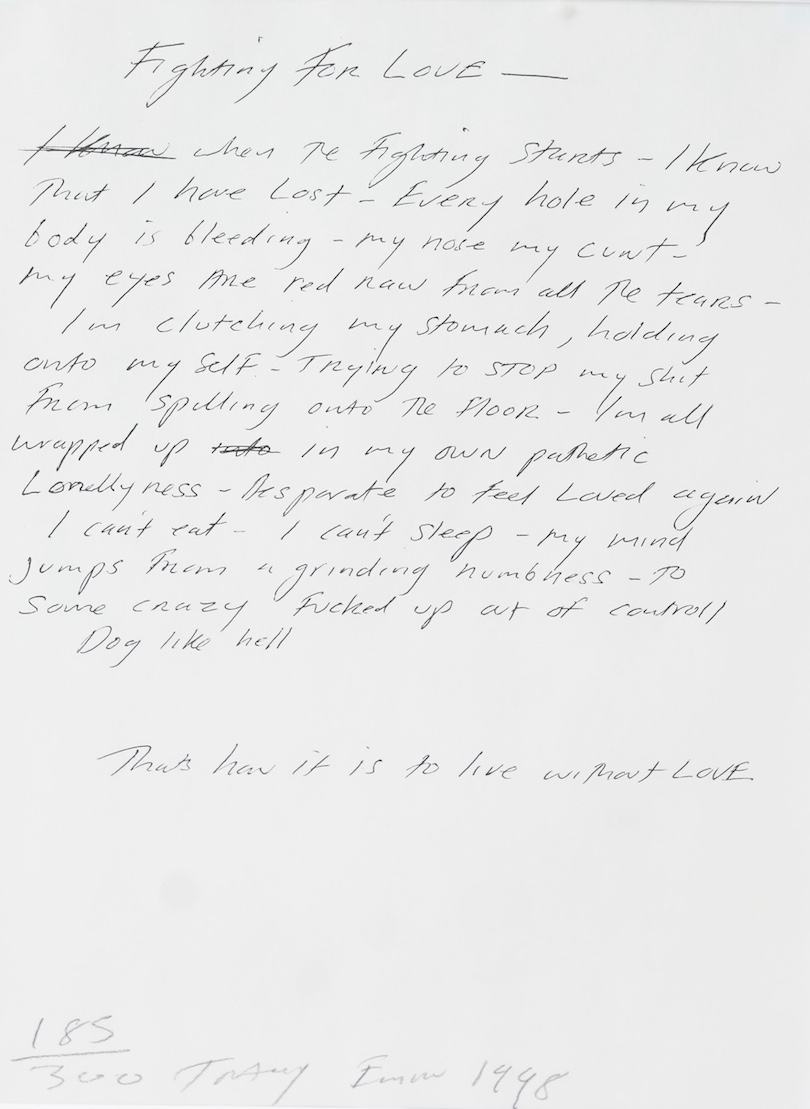 Fighting FOR LOVE —
I know when The Fighting Starts - I Know
That I have Lost - Every hole in my
body is bleeding - my nose my cunt -
my eyes Are red raw from all The tears -
I'm clutching my stomach, holding
onto my self - Trying to STOP my shit
From spilling onto The Floor - I'm all
wrapped up into in my own pathetic
Lonellyness - Desparate to Feel Loved again
I can't eat - I can't Sleep - my mind
Jumps From a grinding numbness - TO
Some crazy Fucked up out of controll
Dog like hell
Thats how it is to live without LOVE
185
300 Tracey Emin 1998